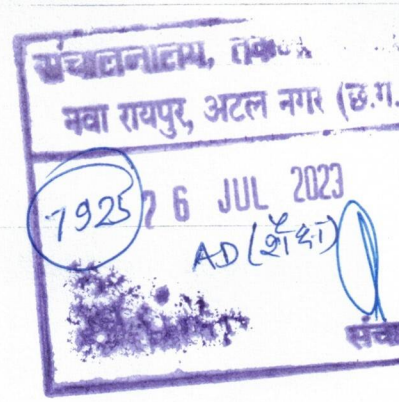 संचालनालय,
नवा रायपुर, अटल नगर (छ.ग.
7925 26 JUL 2023
AD (शै.क्षा)